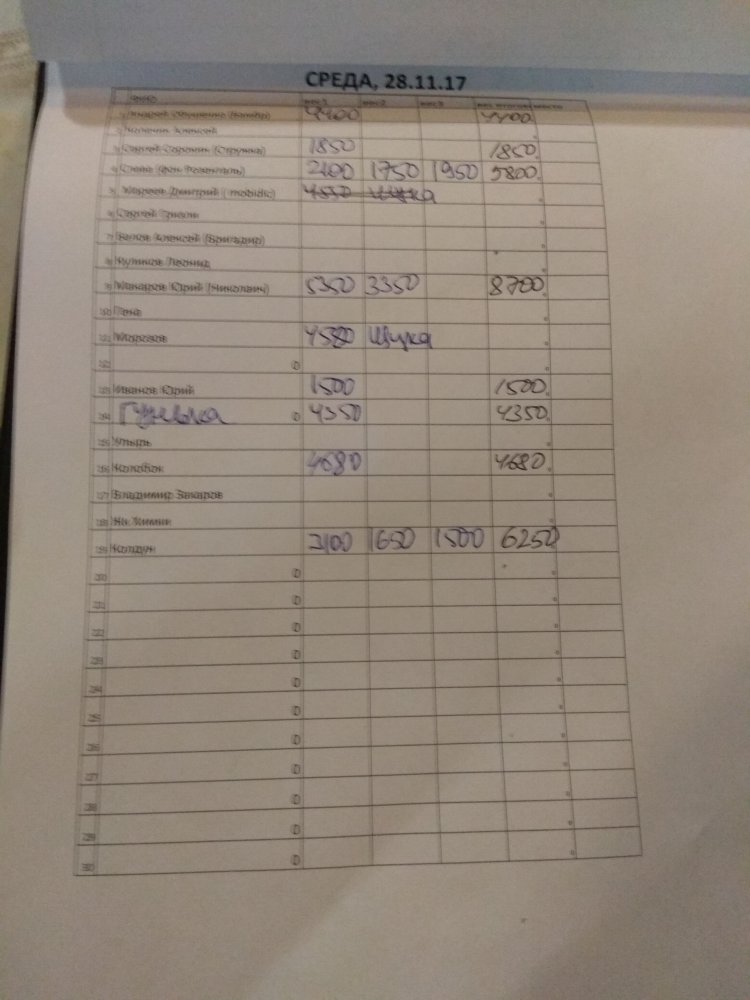 СРЕДА, 28.11.17
ФИО вес1 вес2 вес3 вес итогом место
1 Андрей 4400 4400
2 Алексей
3 Сергей Сорокин (Струмка) 1850 1850
4 Слава (фон Розенталь) 2100 1750 1950 5800
5 Дмитрий (mobidic) 4550 Щука
6 Сергей
7 Алексей (Бригадир)
8 Куликов Леонид
9 Макаров Юрий (Николаич) 5350 3350 8700
10 Гена
11 Морозов 4580 Щука
12 0
13 Иванов Юрий 1500 1500
14 Гунька 0 4350 4350
15 Упырь
16 Колобок 4680 4680
17 Владимир Захаров
18 Ян Химик
19 Колдун 3100 1650 1500 6250
20 0
21 0
22 0
23 0
24 0
25 0
26 0
27 0
28 0
29 0
30 0